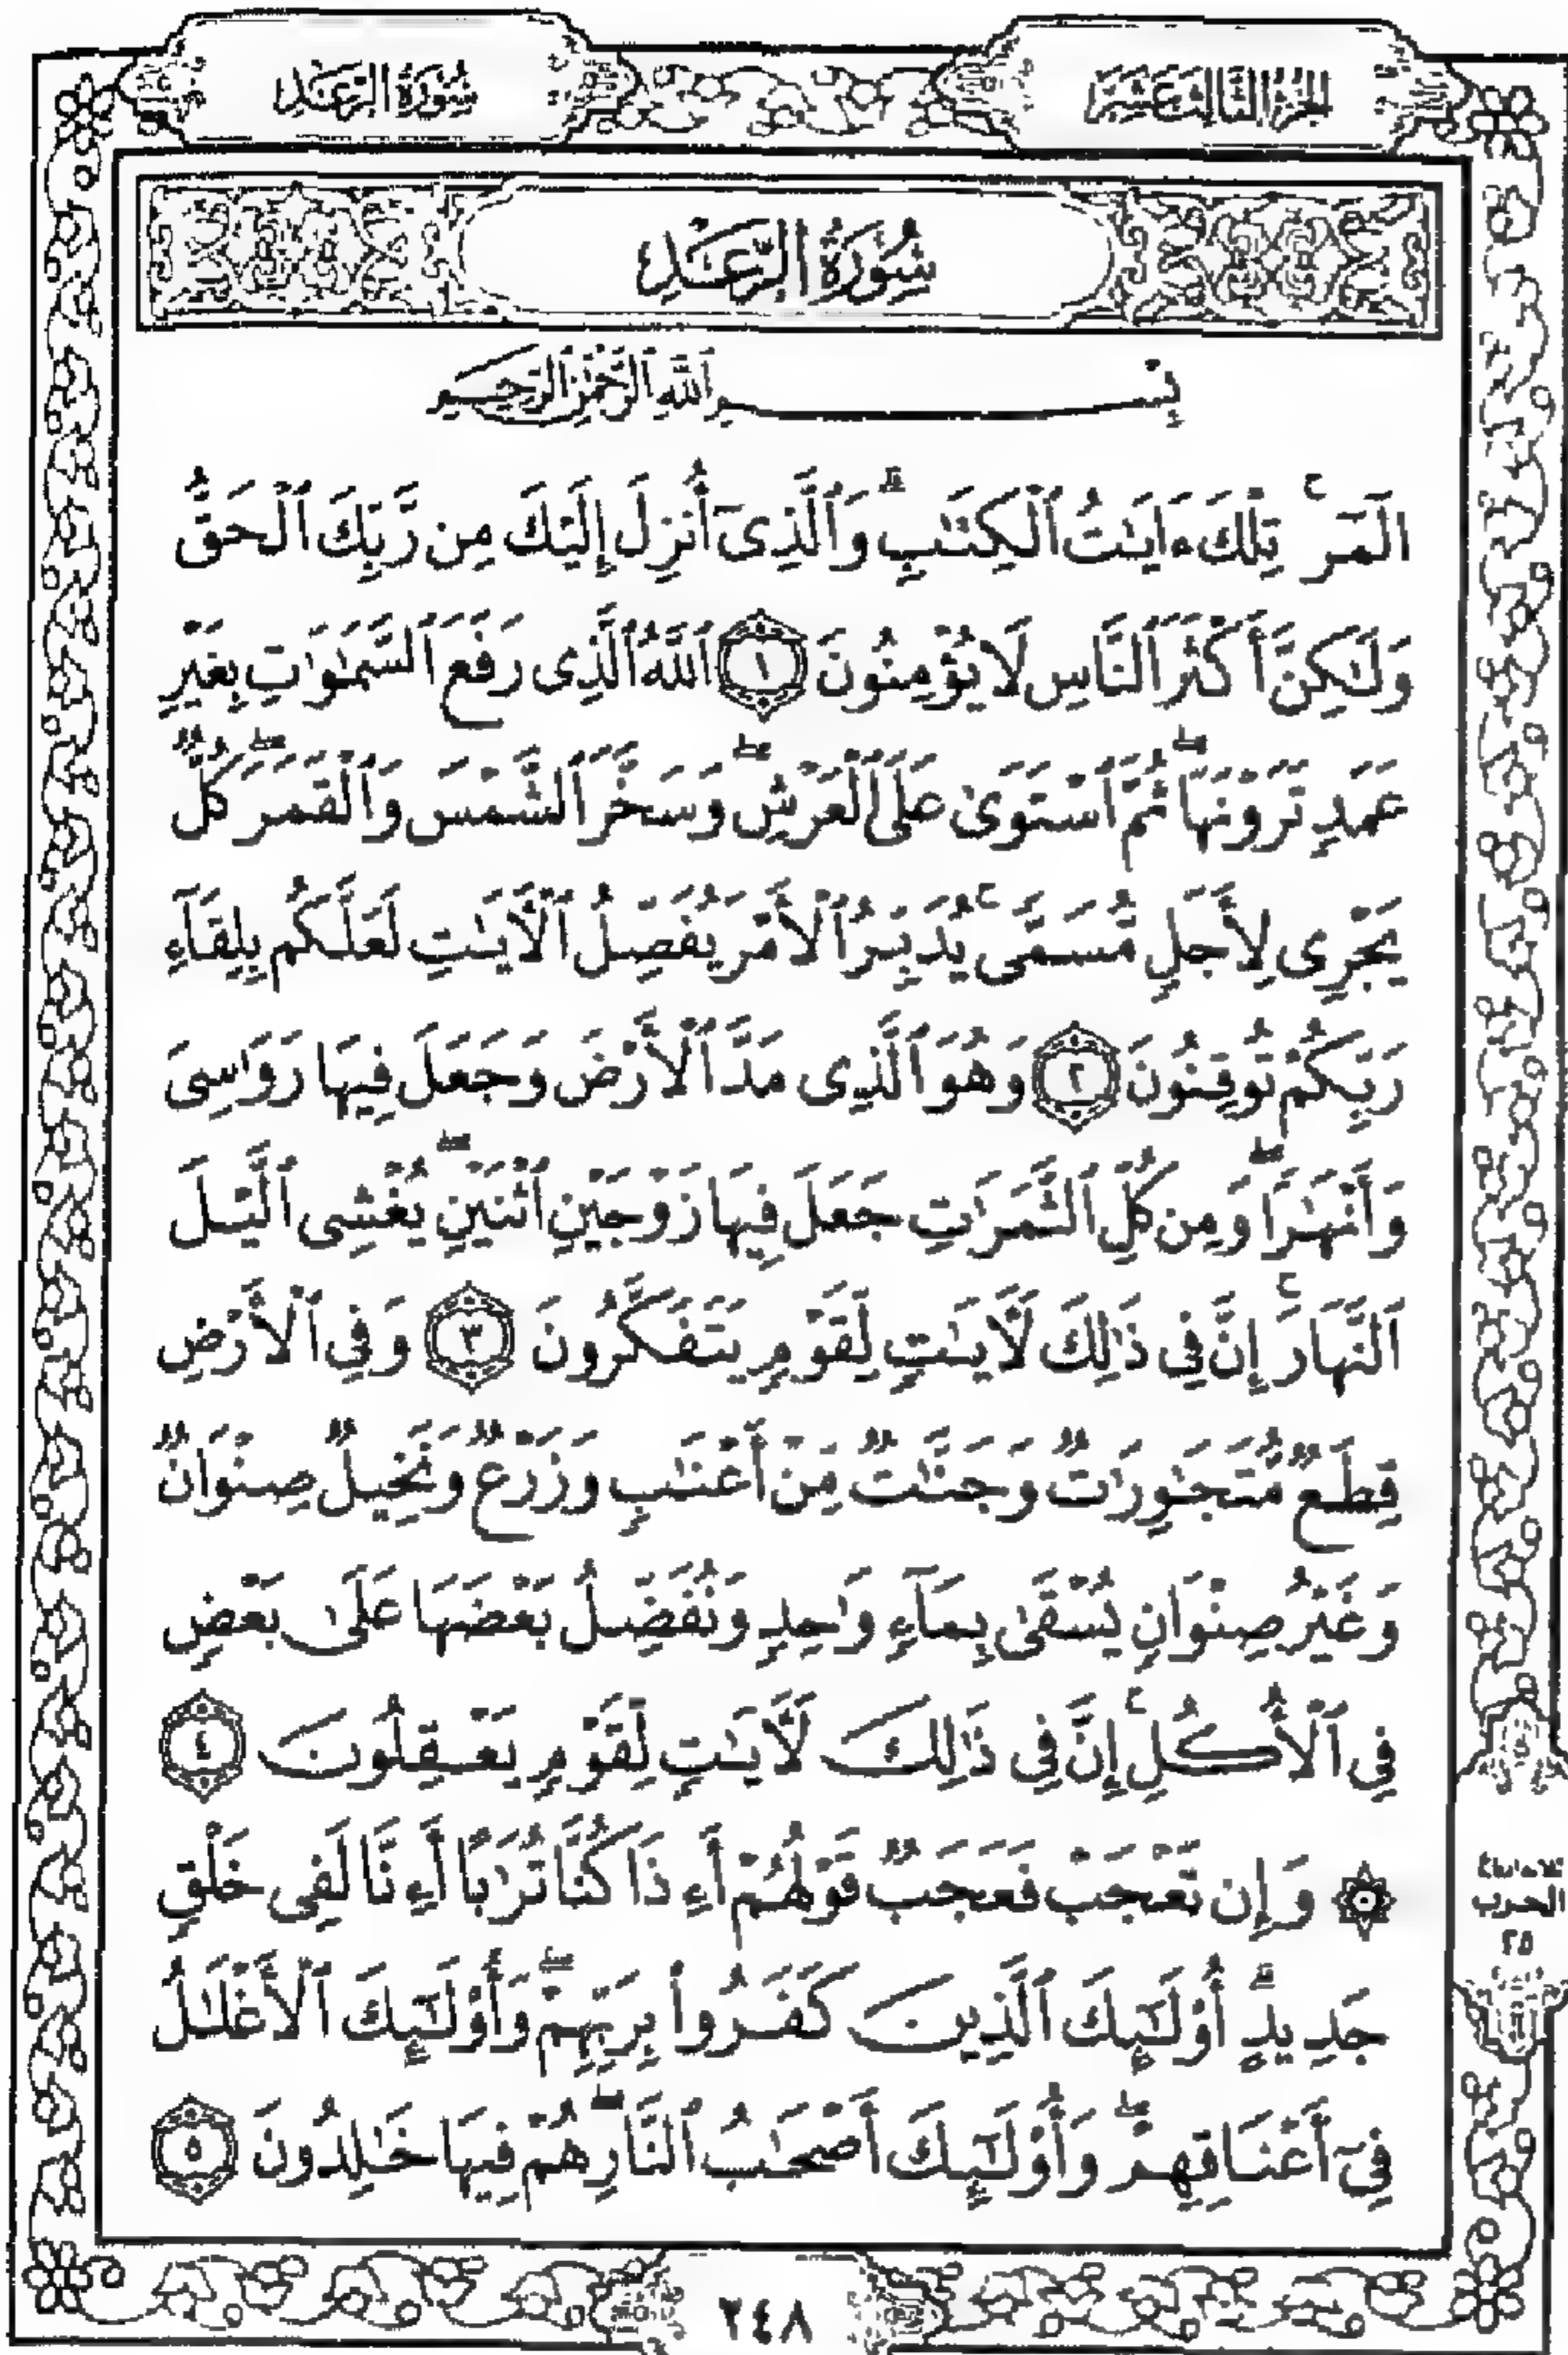 الجزء الثالث عشر
سورة الرعد
سُورَةُ الرَّعْدِ
بِسْمِ ٱللَّهِ ٱلرَّحْمَٰنِ ٱلرَّحِيمِ
الٓمٓرۚ تِلْكَ ءَايَٰتُ ٱلْكِتَٰبِۗ وَٱلَّذِىٓ أُنزِلَ إِلَيْكَ مِن رَّبِّكَ ٱلْحَقُّ
وَلَٰكِنَّ أَكْثَرَ ٱلنَّاسِ لَا يُؤْمِنُونَ ١ ٱللَّهُ ٱلَّذِى رَفَعَ ٱلسَّمَٰوَٰتِ بِغَيْرِ
عَمَدٍ تَرَوْنَهَاۖ ثُمَّ ٱسْتَوَىٰ عَلَى ٱلْعَرْشِۖ وَسَخَّرَ ٱلشَّمْسَ وَٱلْقَمَرَۖ كُلٌّ
يَجْرِى لِأَجَلٍ مُّسَمًّىۚ يُدَبِّرُ ٱلْأَمْرَ يُفَصِّلُ ٱلْءَايَٰتِ لَعَلَّكُم بِلِقَآءِ
رَبِّكُمْ تُوقِنُونَ ٢ وَهُوَ ٱلَّذِى مَدَّ ٱلْأَرْضَ وَجَعَلَ فِيهَا رَوَٰسِىَ
وَأَنْهَٰرًاۖ وَمِن كُلِّ ٱلثَّمَرَٰتِ جَعَلَ فِيهَا زَوْجَيْنِ ٱثْنَيْنِۖ يُغْشِى ٱلَّيْلَ
ٱلنَّهَارَۚ إِنَّ فِى ذَٰلِكَ لَءَايَٰتٍ لِّقَوْمٍ يَتَفَكَّرُونَ ٣ وَفِى ٱلْأَرْضِ
قِطَعٌ مُّتَجَٰوِرَٰتٌ وَجَنَّٰتٌ مِّنْ أَعْنَٰبٍ وَزَرْعٌ وَنَخِيلٌ صِنْوَانٌ
وَغَيْرُ صِنْوَانٍ يُسْقَىٰ بِمَآءٍ وَٰحِدٍ وَنُفَضِّلُ بَعْضَهَا عَلَىٰ بَعْضٍ
فِى ٱلْأُكُلِۚ إِنَّ فِى ذَٰلِكَ لَءَايَٰتٍ لِّقَوْمٍ يَعْقِلُونَ ٤
۞ وَإِن تَعْجَبْ فَعَجَبٌ قَوْلُهُمْ أَءِذَا كُنَّا تُرَٰبًا أَءِنَّا لَفِى خَلْقٍ
جَدِيدٍۗ أُو۟لَٰٓئِكَ ٱلَّذِينَ كَفَرُوا۟ بِرَبِّهِمْۖ وَأُو۟لَٰٓئِكَ ٱلْأَغْلَٰلُ
فِىٓ أَعْنَاقِهِمْۖ وَأُو۟لَٰٓئِكَ أَصْحَٰبُ ٱلنَّارِۖ هُمْ فِيهَا خَٰلِدُونَ ٥
الحزب
٢٥
٢٤٨